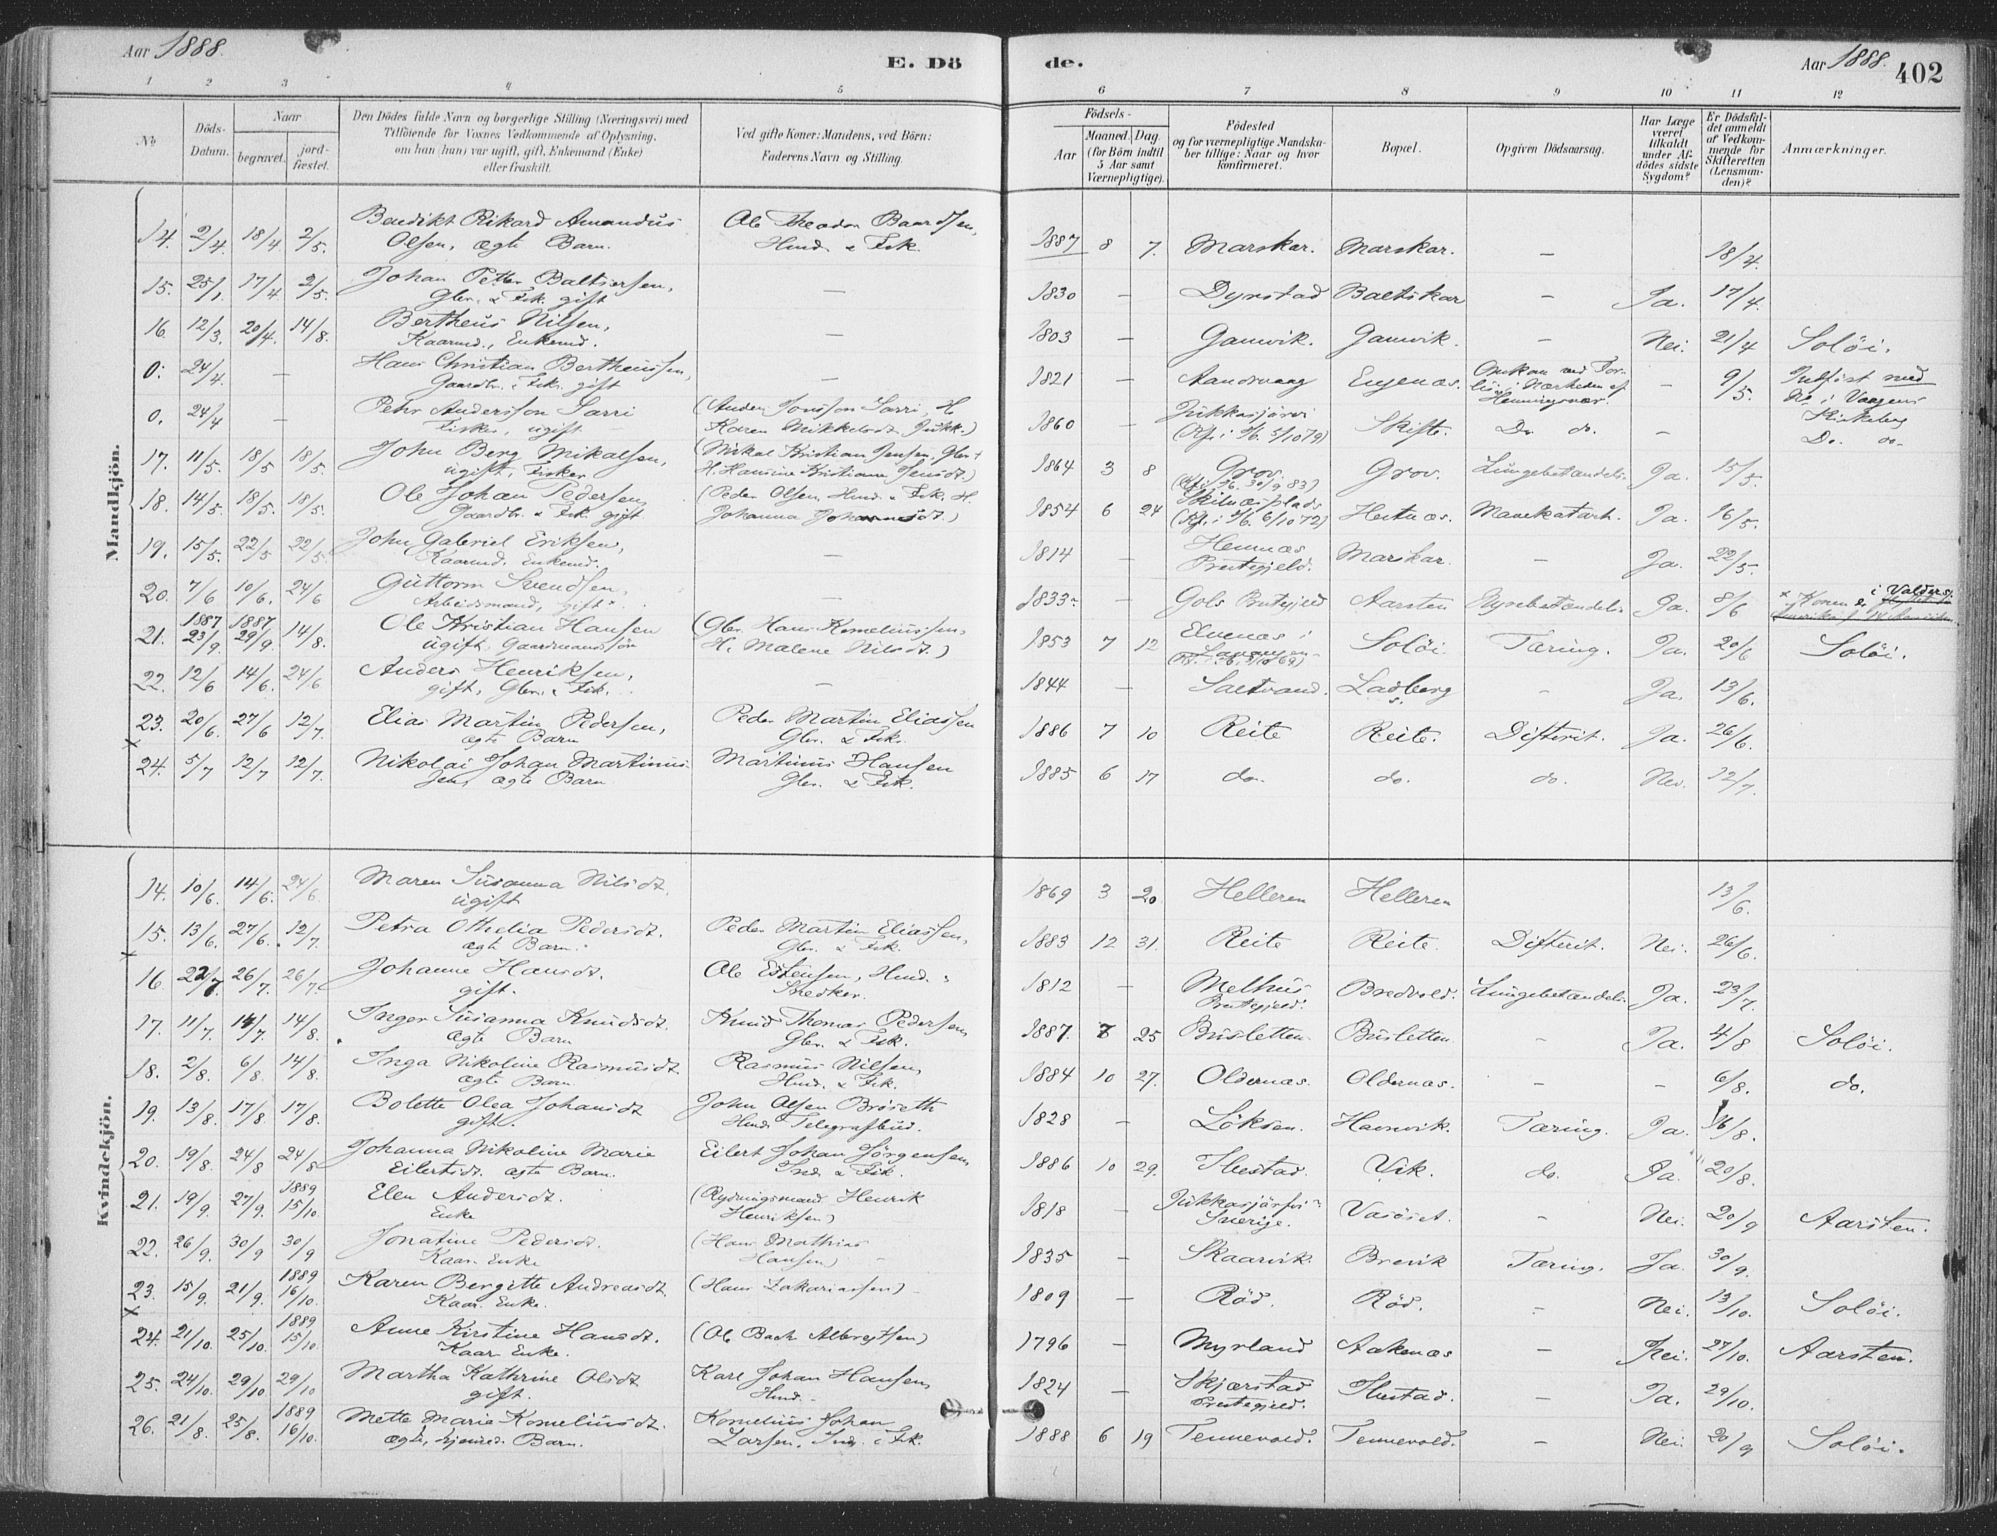 Aar 1888.
E. Dö
de.
Aar 1888.
402
1 2 3 4 5 6 7 8 9 10 11 12
No
Döds-Datum.
Naar
begravet.
jord-fæstet.
Den Dödes fulde Navn og borgerlige Stilling (Næringsvei) med
Tilföiende for Voxnes Vedkommende af Oplysning,
om han (hun) var ugift, gift, Enkemand (Enke)
eller fraskilt.
Ved gifte Koner: Mandens, ved Börn:
Faderens Navn og Stilling.
Födsels-
Aar
Maaned. Dag.
(for Börn indtil
5 Aar samt
Værnepligtige).
Födested
og for værnepligtige Mandska-
ber tillige: Naar og hvor
konfirmeret.
Bopæl.
Opgiven Dödsaarsag.
Har Læge
været
tilkaldt
under Af-
dödes sidste
Sygdom?
Er Dödsfal-
det anmeldt
af Vedkom-
mende for
Skifteretten
(Lensman-
den)?
Anmærkninger.
Mandkjön.
14. 2/4 18/4 2/5. Benedikt Rikard Amandus Ole Theodor Baardsen, 1887 8 7. Marskar. Marskar. – 18/4.
Olsen, ægte Barn. Hmd. & Fisk.
15. 25/1 17/4 2/5. Johan Petter Baltsersen, – 1830 – Dyrstad Baltskar – Ja. 17/4
Gbr. & Fisk. gift
16. 12/3 20/4. 14/8 Bertheus Nilsen, – 1803 – Gamvik. Gamvik. – Nei. 21/4 Soløi.
Kaarmd., Enkemd.
0: 24/4. – Hans Christian Bertheussen, – 1821 – Aandsvaag Engenæs. Omkom ved For- – 9/5. Indført med
Gaardbr. & Fisk. gift lis i Nærheden af No i Vaagens
Henningsvær. Kirkebog
0. 24/4 – Pehr Andersson Sarri (Anders Jonsson Sarri, H. 1860 – Jukkasjärvi Skifte. Do. do. – Do. do.
Fisker, ugift Karen Mikkelsdt. Jukk.) (Kfr. i 5/10 79)
17. 11/5. 18/5 18/5. John Berg Mikalsen, (Mikal Kristian Jensen, Gbr. & 1864 3 8 Grov. Grov. Lungebetændelse Ja. 15/5.
ugift, Fisker H. Hansine Kristianne Jensdt.) 30/9 83)
18. 14/5. 18/5. 18/5. Ole Johan Pedersen, (Peder Olsen, Hmd. & Fisk. H. 1854 6 24 Hertnæs. Mavekatarh. Ja. 16/5.
Gaardbr. & Fisk. gift Johanna Johannesdt.) 6/10 72)
19. 15/5. 22/5 22/5 John Gabriel Eriksen, – 1814 – Hemnæs Marskar. – Ja. 22/5.
Kaarmd. Enkemd. Prestegjeld.
20. 7/6 10/6. 24/6 Guttorm Svendsen, – 1833 – Gols Prstgjeld Aarsten Nyrebetændelse Ja. 8/6 × Konen i Valders
Arbeidsmand, gift ×
21. 1887 23/9 1887 29/9. 14/8. Ole Kristian Hansen (Gbr. Hans Korneliussen, 1853 7 12 Elvenæs i Soløi. Tæring. Ja. 20/6 Soløi.
ugift Gaardmandssøn H. Malene Nilsdt.) 69)
22. 12/6 14/6. 24/6 Anders Henriksen, – 1844 – Sætrand. Ladberg – Ja. 13/6.
gift, Gbr. & Fisk.
23. 20/6. 27/6 12/7. Elias Martin Pedersen, Peder Martin Eliassen 1886 7 10 Reite Reite. Difterit. Ja. 26/6.
ægte Barn Gbr. & Fisk.
24. 5/7 12/7 12/7. Nikolai Johan Martinus- Martinus Hansen 1885 6 17 do. do. do. Nei. 12/7.
sen, ægte Barn Gbr. & Fisk.
Kvindekjön.
14. 10/6. 14/6. 24/6 Maren Susanna Nilsdt. 1869 3 20. Helleren Helleren 13/6.
ugift
15. 13/6. 27/6. 12/7. Petra Othelia Pedersdt. Peder Martin Eliassen, 1883 12 31. Reite Reite. Difterit. Nei. 26/6.
ægte Barn. Gbr. & Fisk.
16 22/7 26/7 26/7. Johanne Hansdt. Ole Estensen, Hmd. & 1812 – Melhus Bredvold. Lungebetændelse Ja. 23/7.
gift. Snedker. Prstegjeld.
17. 11/7 14/7 14/8. Inger Susanna Knudsdt. Knud Thomas Pedersen, 1887. 7 25 Busletten Busletten. – Ja. 4/8 Soløi.
ægte Barn Gbr. & Fisk.
18. 2/8. 6/8 14/8. Inga Nikoline Rasmusdt. Rasmus Nilsen, 1884 10 27. Oldernæs. Oldernæs. – – 6/8. do.
ægte Barn. Hmd. & Fisk.
19. 13/8 17/8 17/8. Bolette Olea Johansdt. John Olsen Brøseth 1828 – Löksen. Havnvik. Tæring. Ja. 16/8.
gift. Hmd. & Telegrafbud.
20. 19/8. 24/8 24/8 Johanna Nikoline Marie Eilert Johan Jørgensen, 1886 10 29. Ibestad. Vik. do. Ja. 20/8.
Eilertsdt. ægte Barn. Ind. & Fisk.
21. 19/9. 27/9. 1889 15/10. Elen Andersdt. (Rydningsmand Henrik 1818 – Jukkasjärfvi Vasöset. – Nei. 20/9 Aarsten.
Enke Henriksen) Sverige.
22. 26/9. 30/9 30/9 Jonatine Pedersdt. (Hans Mathias 1835 – Skaarvik. Brevik Tæring. Ja. 30/9.
Kaar. Enke Hansen)
23. 15/9. 21/9. 1889 16/10. Karen Bergitte Andreasdt. (Hans Zakariassen) 1809 – Röd. Röd. – Nei. 13/10. Soløi.
Kaar. Enke.
24. 21/10. 25/10. 1889 15/10. Anne Kirstine Hansdt. (Ole Bach Albregtsen) 1796 – Myrland Aakenæs – Nei. 27/10. Aarsten.
Kaar. Enke.
25. 24/10. 29/10 29/10 Martha Kathrine Olsdt. Karl Johan Hansen, 1824 – Skjærstad Ibestad. – Ja. 29/10.
gift. Hmd. Prstegjeld.
26. 21/8. 25/8. 1889 16/10. Mette Marie Korneliusdt. Kornelius Johan 1888 6 19 Tennevold. Tennevold. – Nei. 20/9 Soløi.
ægte, hjemmed. Barn. Larsen, Ind. & Fisk.